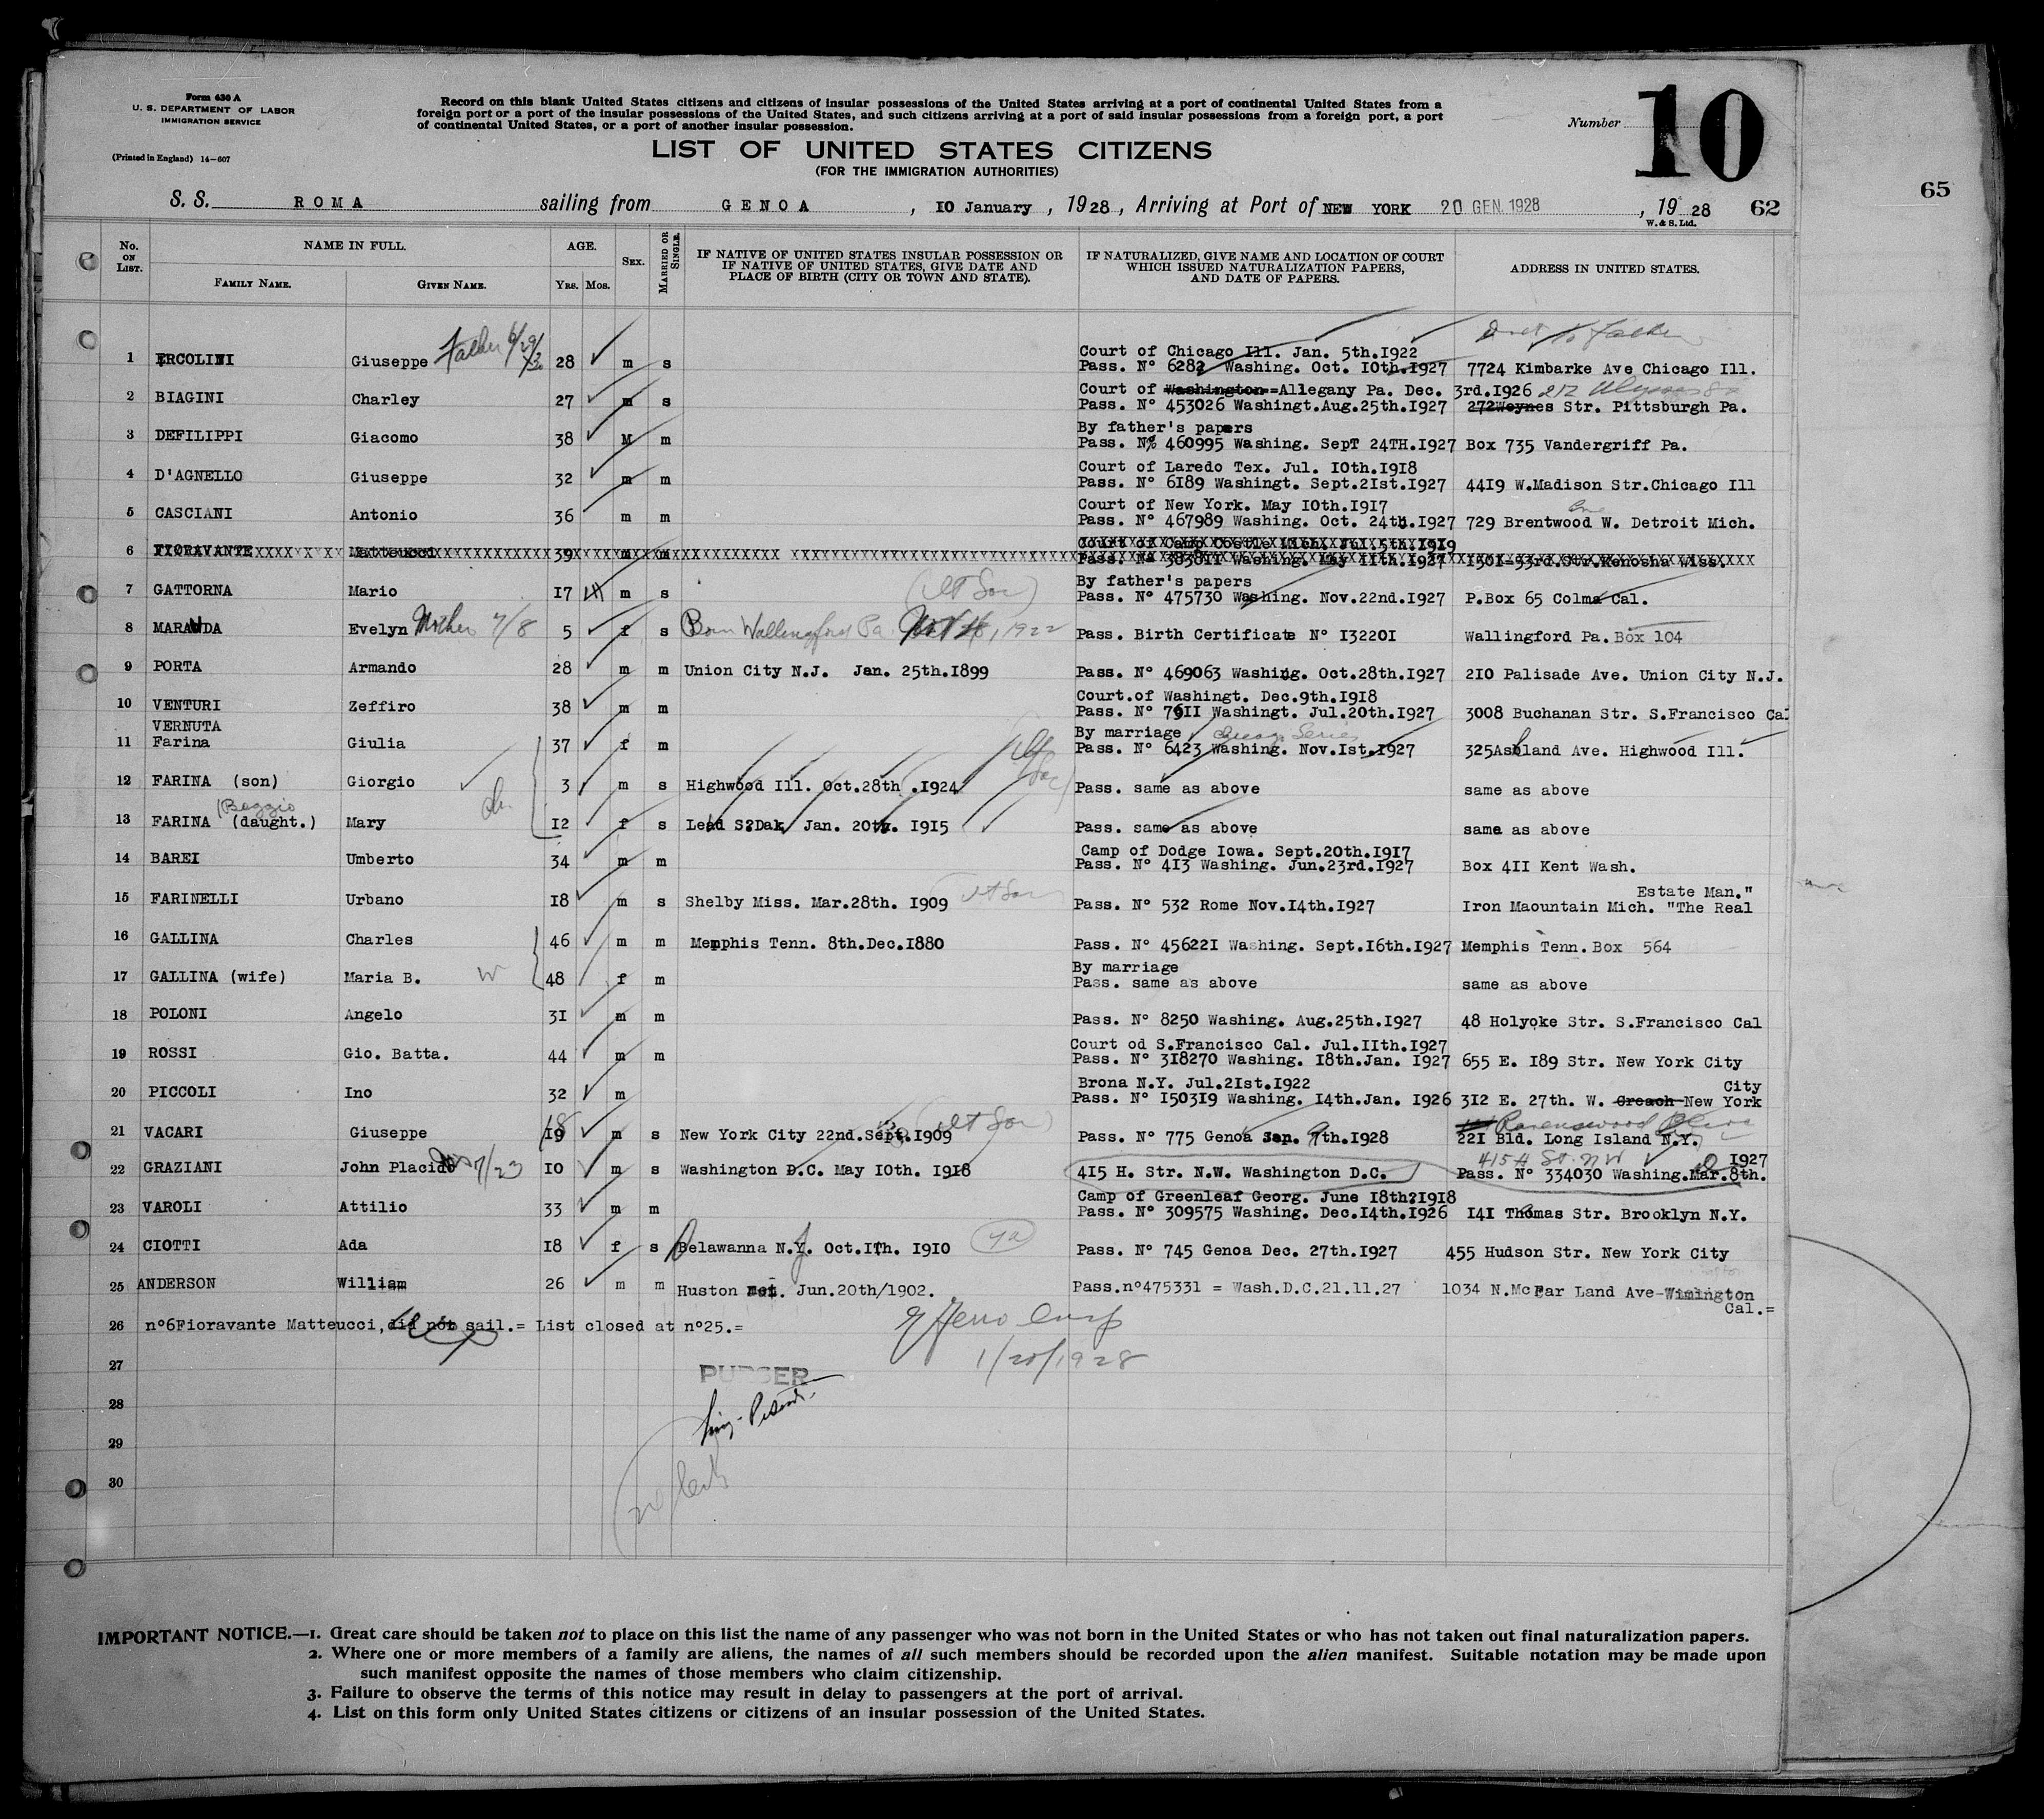 Form 630 A
U. S. DEPARTMENT OF LABOR
IMMIGRATION SERVICE
(Printed in England) 14-607
Record on this blank United States citizens and citizens of insular possessions of the United States arriving at a port of continental United States from a
foreign port or a port of the insular possessions of the United States, and such citizens arriving at a port of said insular possessions from a foreign port, a port
of continental United States, or a port of another insular possession.
Number 10
LIST OF UNITED STATES CITIZENS
(FOR THE IMMIGRATION AUTHORITIES)
65
S. S. ROMA sailing from GENOA, 10 January, 1928, Arriving at Port of NEW YORK 20 GEN. 1928, 1928 62
W. & S. Ltd.
No. ON LIST. NAME IN FULL. FAMILY NAME. GIVEN NAME. AGE. YRS. MOS. SEX. MARRIED OR SINGLE. IF NATIVE OF UNITED STATES INSULAR POSSESSION OR IF NATIVE OF UNITED STATES, GIVE DATE AND PLACE OF BIRTH (CITY OR TOWN AND STATE). IF NATURALIZED, GIVE NAME AND LOCATION OF COURT WHICH ISSUED NATURALIZATION PAPERS, AND DATE OF PAPERS. ADDRESS IN UNITED STATES.
Court of Chicago Ill. Jan. 5th.1922
1 ERCOLINI Giuseppe Father 28 m s Pass. N° 6282 Washing. Oct. 10th.1927 7724 Kimbarke Ave Chicago Ill.
Court of Washington=Allegany Pa. Dec. 3rd.1926 212
2 BIAGINI Charley 27 m s Pass. N° 453026 Washingt.Aug.25th.1927 272Weynes Str. Pittsburgh Pa.
By father's papers
3 DEFILIPPI Giacomo 38 M m Pass. N% 460995 Washing. SepT 24TH.1927 Box 735 Vandergriff Pa.
Court of Laredo Tex. Jul. 10th.1918
4 D'AGNELLO Giuseppe 32 m m Pass. N° 6189 Washingt. Sept.21st.1927 4419 W.Madison Str.Chicago Ill
Court of New York. May 10th.1917
5 CASCIANI Antonio 36 m m Pass. N° 467989 Washing. Oct. 24th.1927 729 Brentwood W. Detroit Mich.
Court of Camp Costle Mich. Jul.5th.1919
6 FIORAVANTE Matteucci 39 m m Pass. N° 383811 Washing. May 11th.1927 1501-53rd.Str.Kenosha Wiss.
By father's papers
7 GATTORNA Mario 17 m s Pass. N° 475730 Washing. Nov.22nd.1927 P.Box 65 Colma Cal.
8 MARANDA Evelyn Mother 7/8 5 f s Born Wallingford Pa 1922 Pass. Birth Certificate N° 132201 Wallingford Pa. Box 104
9 PORTA Armando 28 m m Union City N.J. Jan. 25th.1899 Pass. N° 469063 Washing. Oct.28th.1927 210 Palisade Ave. Union City N.J.
Court.of Washingt. Dec.9th.1918
10 VENTURI Zeffiro 38 m m Pass. N° 7611 Washingt. Jul.20th.1927 3008 Buchanan Str. S.Francisco Cal
VERNUTA By marriage Chicago Series
11 Farina Giulia 37 f m Pass. N° 6423 Washing. Nov.1st.1927 325Ashland Ave. Highwood Ill.
12 FARINA (son) Giorgio 3 m s Highwood Ill. Oct.28th .1924 Pass. same as above same as above
13 FARINA (daught.) Mary 12 f s Lead S?Dak Jan. 20th. 1915 Pass. same as above same as above
Camp of Dodge Iowa. Sept.20th.1917
14 BAREI Umberto 34 m m Pass. N° 413 Washing. Jun.23rd.1927 Box 411 Kent Wash.
Estate Man."
15 FARINELLI Urbano 18 m s Shelby Miss. Mar.28th. 1909 Pass. N° 532 Rome Nov.14th.1927 Iron Maountain Mich. "The Real
16 GALLINA Charles 46 m m Memphis Tenn. 8th.Dec.1880 Pass. N° 456221 Washing. Sept.16th.1927 Memphis Tenn. Box 564
By marriage
17 GALLINA (wife) Maria B. W 48 f m Pass. same as above same as above
18 POLONI Angelo 31 m m Pass. N° 8250 Washing. Aug.25th.1927 48 Holyoke Str. S.Francisco Cal
Court od S.Francisco Cal. Jul.11th.1927
19 ROSSI Gio. Batta. 44 m m Pass. N° 318270 Washing. 18th.Jan. 1927 655 E. 189 Str. New York City
Brona N.Y. Jul.21st.1922 City
20 PICCOLI Ino 32 m Pass. N° 150319 Washing. 14th.Jan. 1926 312 E. 27th. W. Greach New York
Ravenswood
21 VACARI Giuseppe 19 18 m s New York City 22nd.Sept.1909 Pass. N° 775 Genoa Jan. 9th.1928 221 Bld. Long Island N.Y.
415 H St. N W 1927
22 GRAZIANI John Placido 7/23 10 m s Washington D.C. May 10th. 1918 415 H. Str. N.W. Washington D.C. Pass. N° 334030 Washing.Mar.8th.
Camp of Greenleaf Georg. June 18th?1918
23 VAROLI Attilio 33 m m Pass. N° 309575 Washing. Dec.14th.1926 141 Thomas Str. Brooklyn N.Y.
24 CIOTTI Ada 18 f s Delawanna N.J. Oct.1th. 1910 Pass. N° 745 Genoa Dec. 27th.1927 455 Hudson Str. New York City
25 ANDERSON William 26 m m Huston Jun.20th/1902. Pass.n°475331 = Wash.D.C.21.11.27 1034 N.McFar Land Ave-Wimington
Cal.=
26 n°6Fioravante Matteucci,did not sail.= List closed at n°25.=
1/20/1928
27
PURSER
28
29
30
IMPORTANT NOTICE.—1. Great care should be taken not to place on this list the name of any passenger who was not born in the United States or who has not taken out final naturalization papers.
2. Where one or more members of a family are aliens, the names of all such members should be recorded upon the alien manifest. Suitable notation may be made upon
such manifest opposite the names of those members who claim citizenship.
3. Failure to observe the terms of this notice may result in delay to passengers at the port of arrival.
4. List on this form only United States citizens or citizens of an insular possession of the United States.